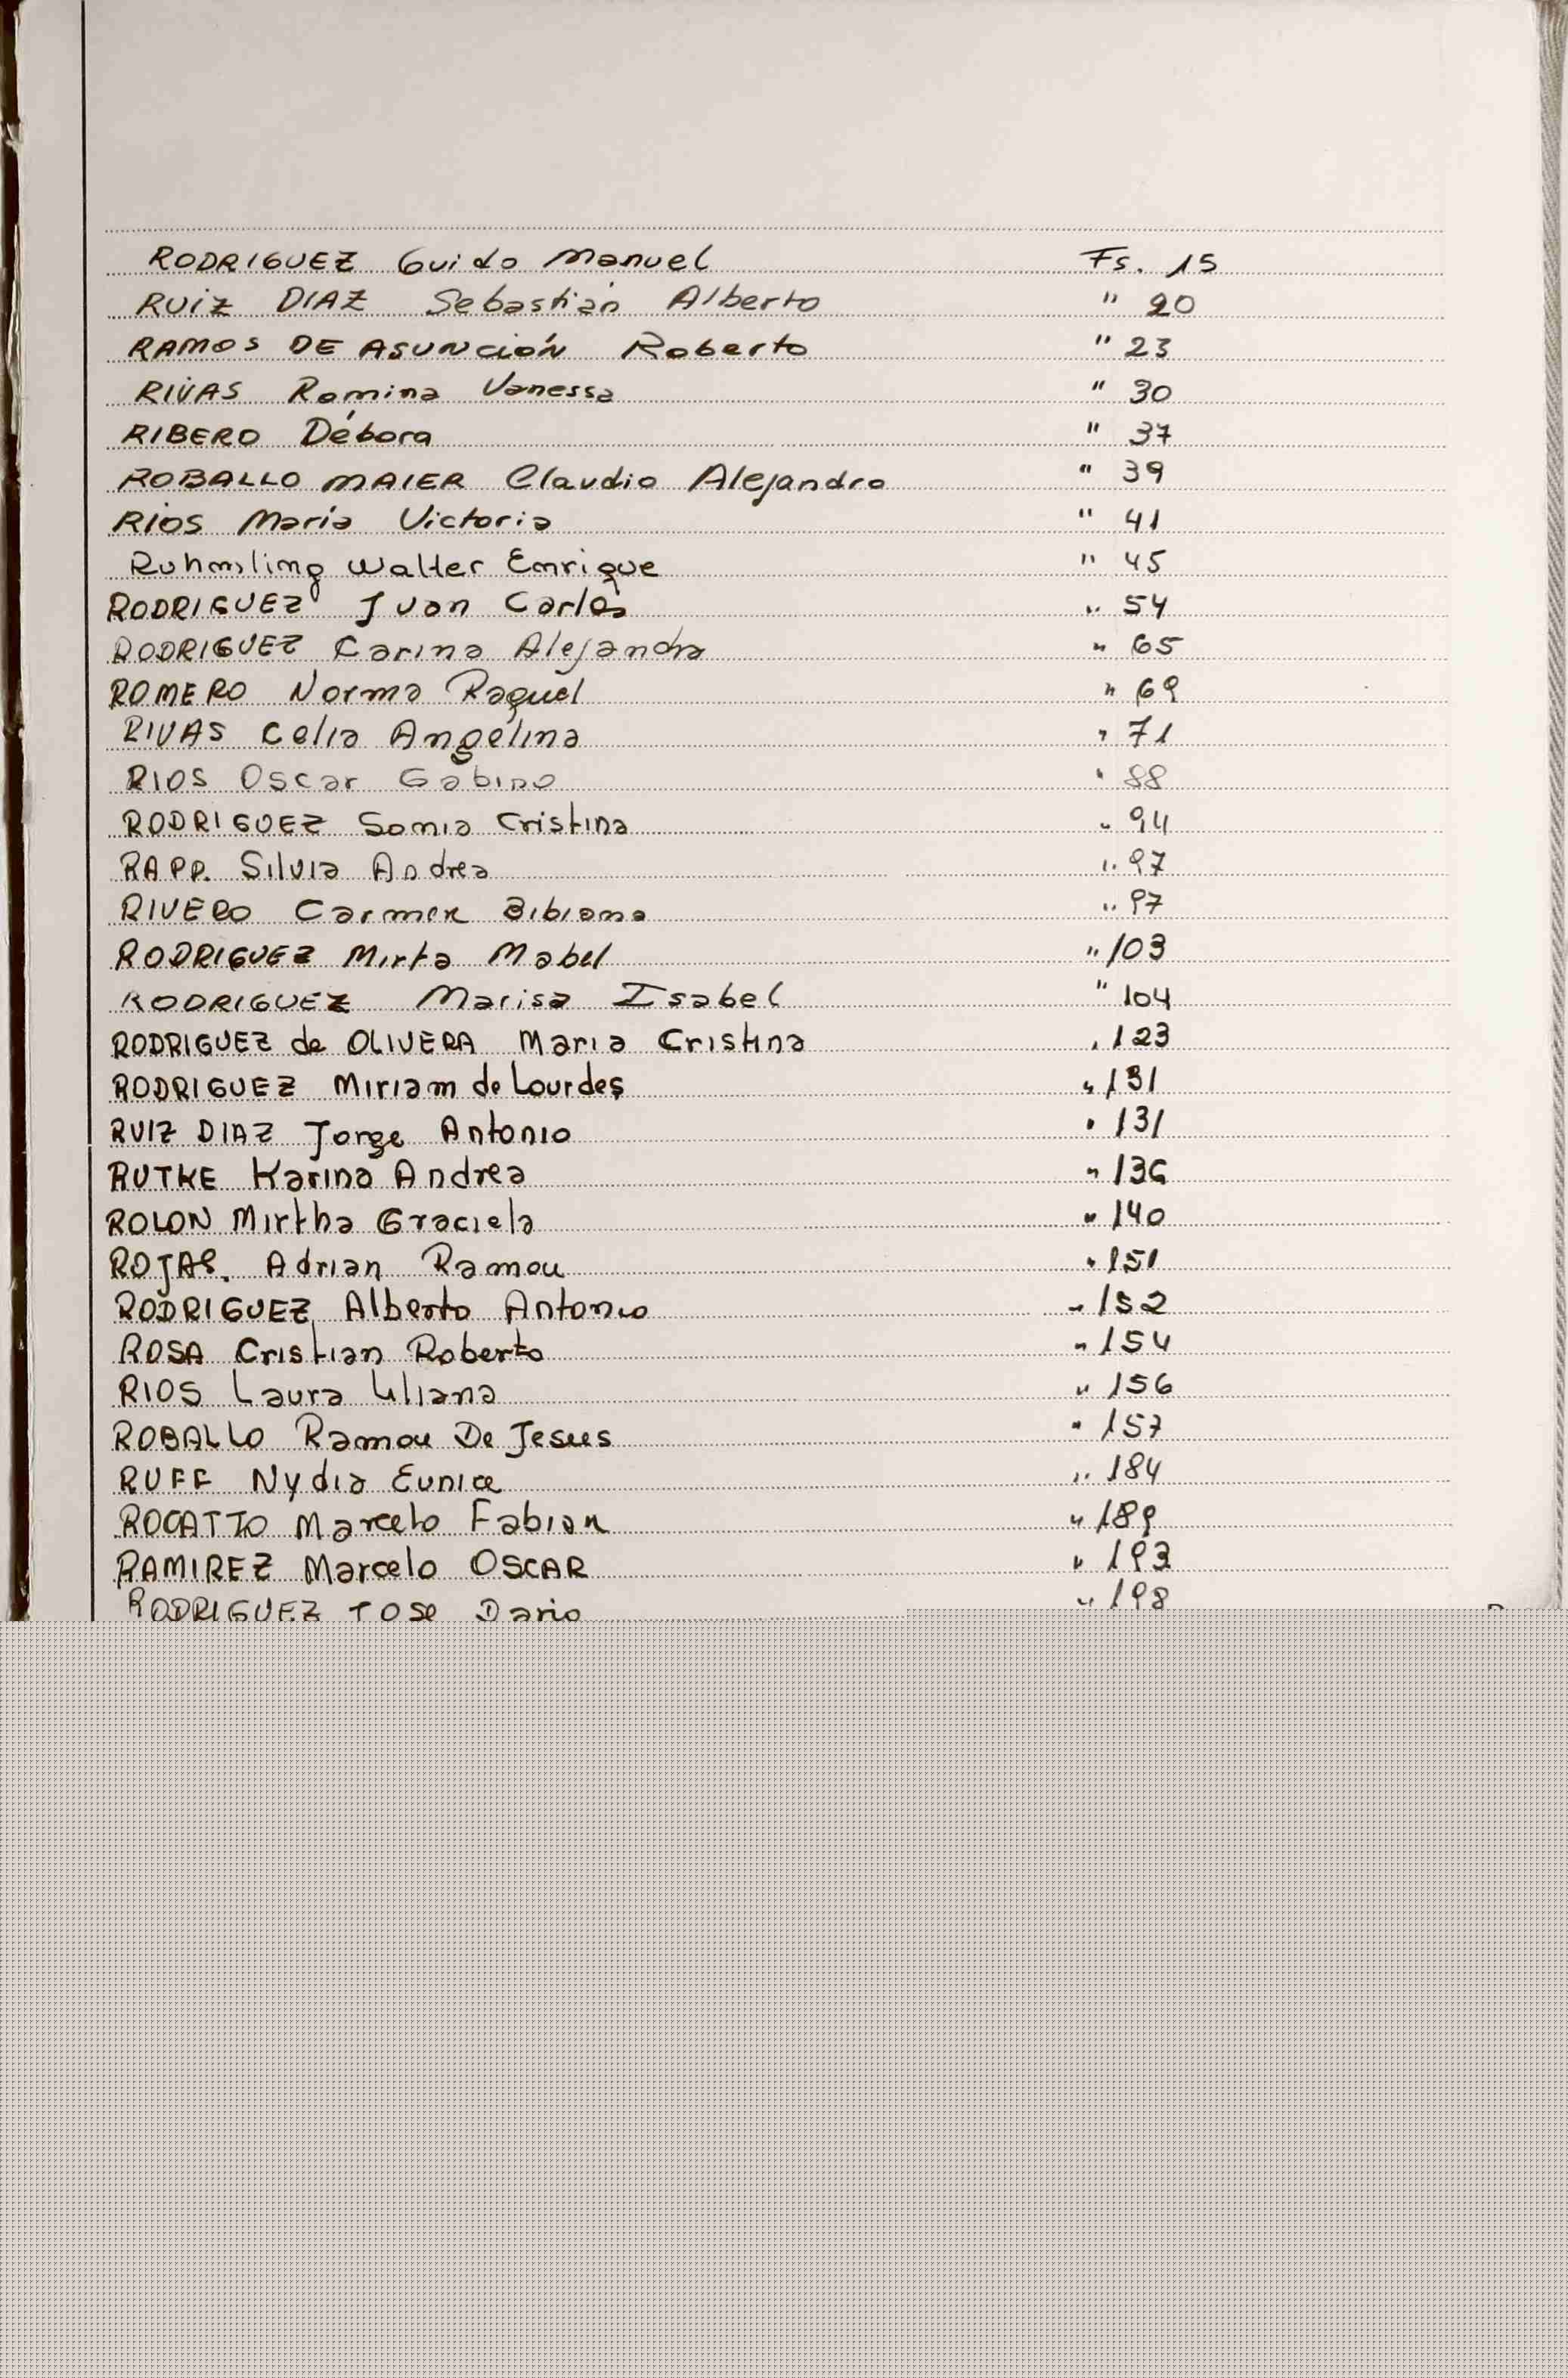 RODRIGUEZ Guido Manuel Fs. 15
RUIZ DIAZ Sebastián Alberto " 20
RAMOS DE ASUNCIÓN Roberto " 23
RIVAS Romina Vanessa " 30
RIBERO Débora " 37
ROBALLO MAIER Claudio Alejandro " 39
RIOS María Victoria " 41
Ruhmsling Walter Enrique " 45
RODRIGUEZ Juan Carlos " 54
RODRIGUEZ Carina Alejandra " 65
ROMERO Norma Raquel " 69
RIVAS Celia Angelina " 71
RIOS Oscar Gabino " 88
RODRIGUEZ Sonia Cristina " 94
RAPP. Silvia Andrea " 97
RIVERO Carmen Bibiana " 97
RODRIGUEZ Mirta Mabel " 103
RODRIGUEZ Marisa Isabel " 104
RODRIGUEZ de OLIVERA Maria Cristina " 123
RODRIGUEZ Miriam de Lourdes " 131
RUIZ DIAZ Jorge Antonio " 131
RUTKE Karina Andrea " 136
ROLON Mirtha Graciela " 140
ROJAS. Adrian Ramon " 151
RODRIGUEZ Alberto Antonio " 152
ROSA Cristian Roberto " 154
RIOS Laura Liliana " 156
ROBALLO Ramon De Jesus " 157
RUFF Nydia Eunice " 184
ROCATTO Marcelo Fabian " 189
RAMIREZ Marcelo OSCAR " 193
RODRIGUEZ JOSE Dario " 198